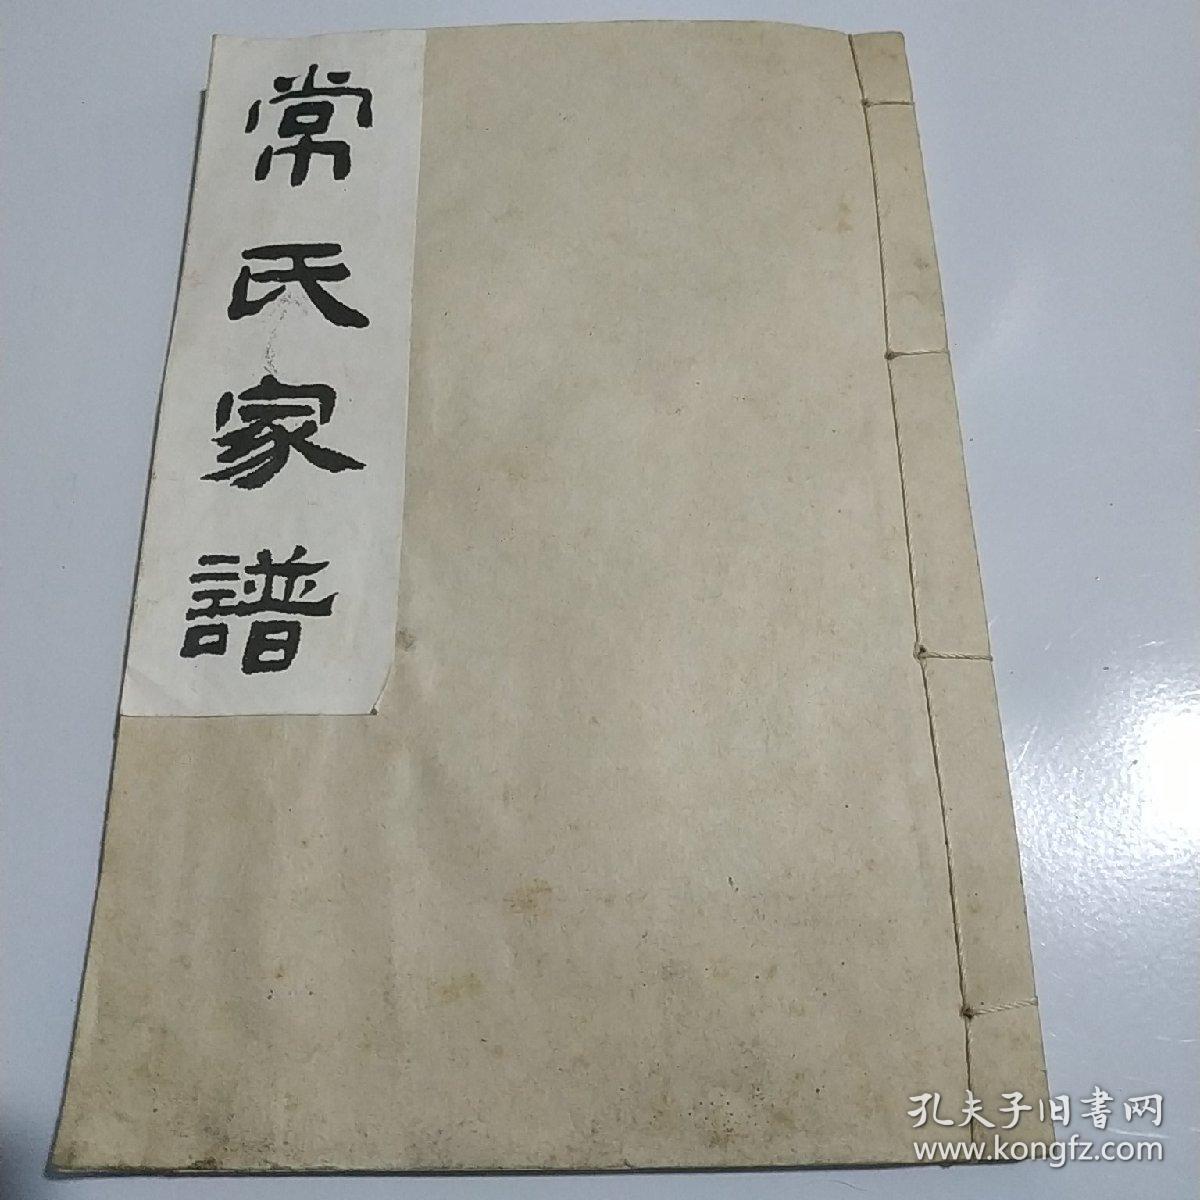 常氏家譜
孔夫子旧書网
www.kongfz.com